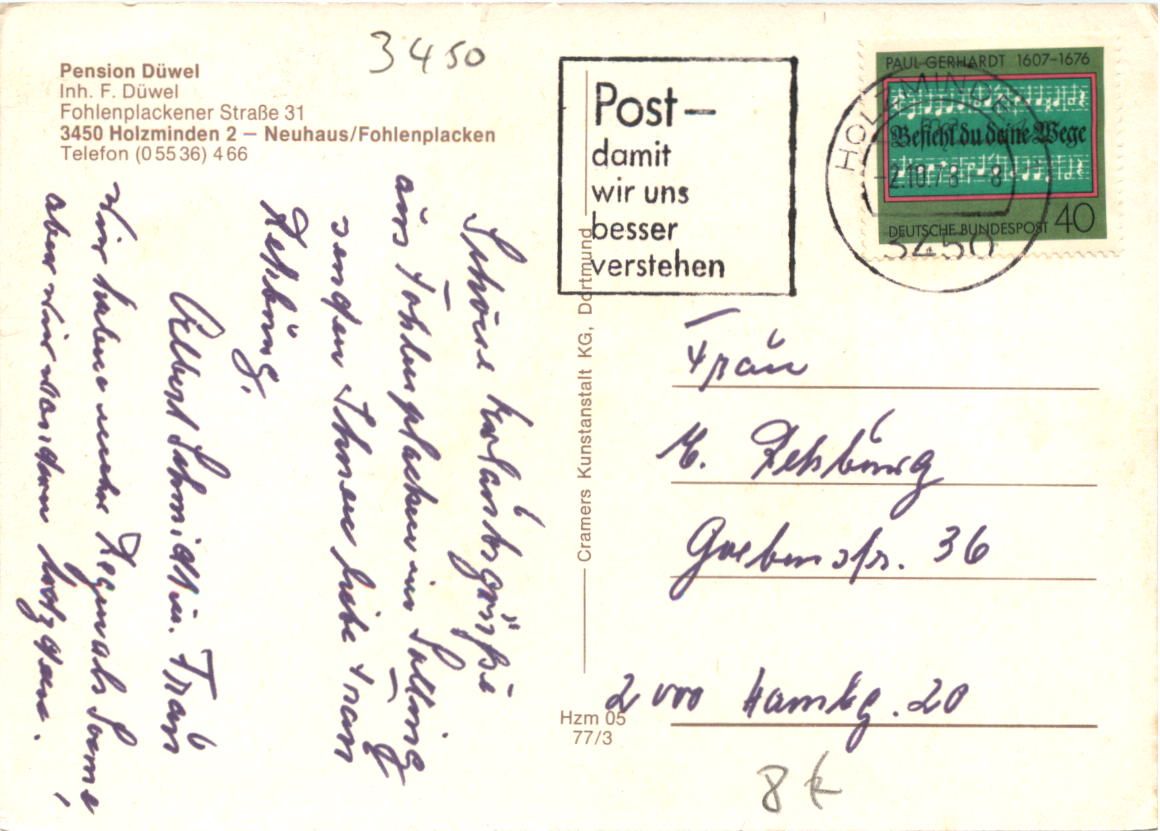 3450
Pension Düwel
Inh. F. Düwel
Fohlenplackener Straße 31
3450 Holzminden 2 — Neuhaus/Fohlenplacken
Telefon (0 55 36) 4 66
Post—
damit
wir uns
besser
verstehen
PAUL GERHARDT 1607-1676
Befiehl du deine Wege
DEUTSCHE BUNDESPOST 40
HOLZMINDEN
-2.10.78-8
3450
Schöne Urlaubsgrüße
aus Fohlenplacken im Solling
senden Ihnen liebe Frau
Rehburg.
Albert Schmidt u. Frau
Wir haben mehr Regen als Sonne,
aber wir wandern trotzdem.
Cramers Kunstanstalt KG, Dortmund
Hzm 05
77/3
Frau
M. Rehburg
Goebenstr. 36
2000 Hambg. 20
8